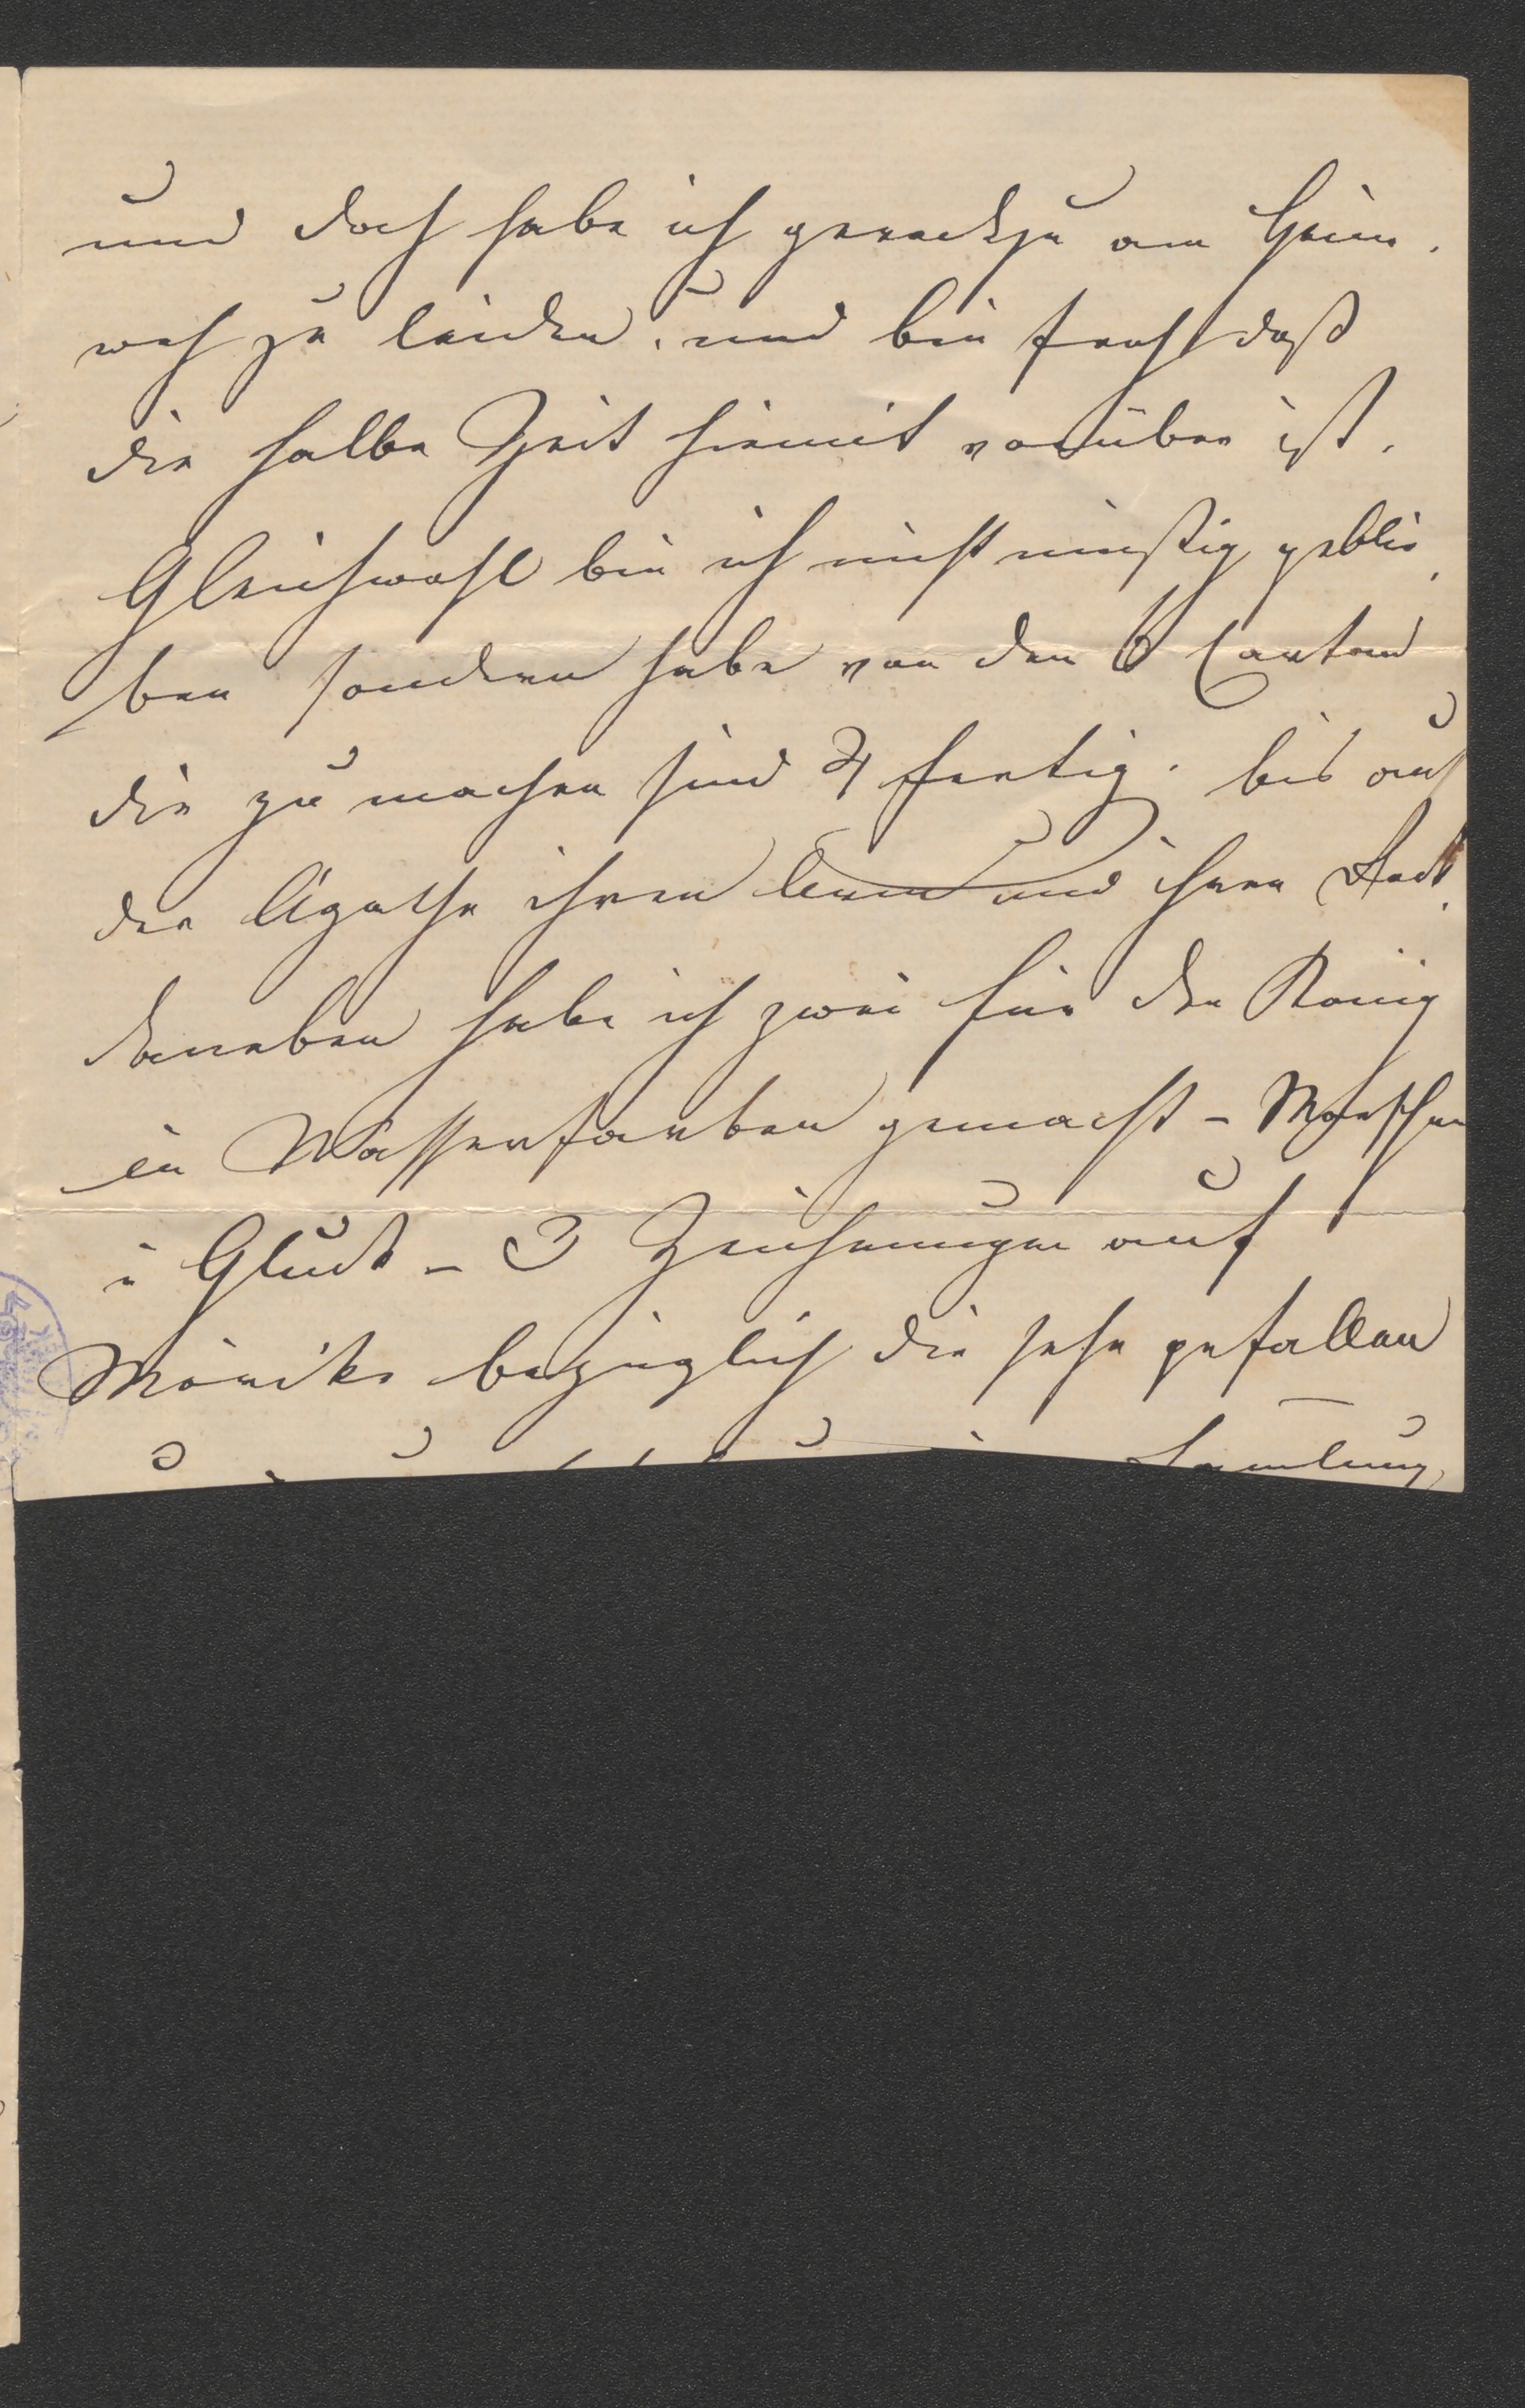 und doch habe ich geradezu am Heim-
weh zu leiden, und bin froh daß
die halbe Zeit hiemit vorüber ist.
Gleichwohl bin ich nicht müßig geblie-
ben sondern habe von den 6 Carton
die zu machen sind 4 fertig. bis auf
der Agathe ihren und ihren
daneben habe ich zwei für den König
in Wasserfarben gemacht -
u Gluck - 3 Zeichnungen auf
Mörike bezüglich die sehr gefallen
Samlung